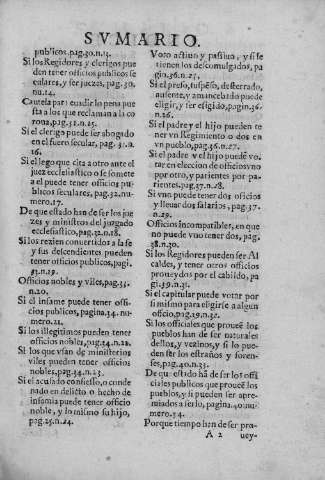 SVMARIO.
publicos.pag.30.n.13.
Si los Regidores y clerigos pue
den tener officios publicos se
culares, y ser juezes, pag.30.
nu.14.
Cautela para euadir lo pena pue
sta a los que reclaman a la co
rona, pag.32.n.15.
Si el clerigo puede ser abogado
en el fuero secular, pag. 32.n.
16.
Si el lego que cita a otro ante el
juez ecclesiastico o se somete
a el puede tener officios pu-
blicos seculares, pag.32.nu-
mero.17.
De que estado han de ser los jue
zes y ministros del juzgado
ecclesiastico, pag.32.n.18.
Si los rezien conuertidos a la fe
y sus descendientes pueden
tener officios publicos, pagi.
33.n.19.
Officios nobles y viles, pag.33.
n.20.
Si el infame puede tener offi-
cios publicos, pagina.34. nu-
mero.21.
Si los illegitimos pueden tener
officios nobles, pag.34.n.22.
Si los que vsan de ministerios
viles pueden tener officios
nobles, pag.34.n.23.
Si el acusado confiesso, o conde
nado en delicto o hecho de
infamia puede tener officio
noble, y lo mismo su hijo,
pag.35.n.24.
Voto actiuo y passiuo, y si le
tienen los descomulgados, pa
gin.36.n.25.
Si el preso, suspēso, desterrado,
ausente, y amancebado puede
eligir, y ser eligido, pagin.36.
n.26.
Si el padre y el hijo pueden te
ner vn Regimiento o dos en
vn pueblo, pag.36.n.27.
Si el padre y el hijo puedē vo-
tar en eleccion de officios vno
por otro, y parientes por pa-
rientes.pag.37.n.28.
Si vno puede tener dos officios
y lleuar dos salarios, pag.37.
n.29.
Officios incompatibles, en que
no puede vno tener dos, pag.
38.n.30.
Si los Regidores pueden ser Al
caldes, y tener otros officios
proueydos por el cabildo, pa
gi.39.n.31.
Si el capitular puede votar por
si mismo para eligirse a algun
officio, pag.39.n.32.
Si los officiales que proueē los
pueblos han de ser naturales
dellos, y vezinos, y si lo pue-
den ser los estraños y foren-
ses, pag.40.n.33.
De que estado hā de ser los offi
ciales publicos que proueē los
pueblos, y si pueden ser apre-
miados a serlo, pagina.40.nu-
mero.34.
Porque tiempo han de ser pro-
A 2 uey-